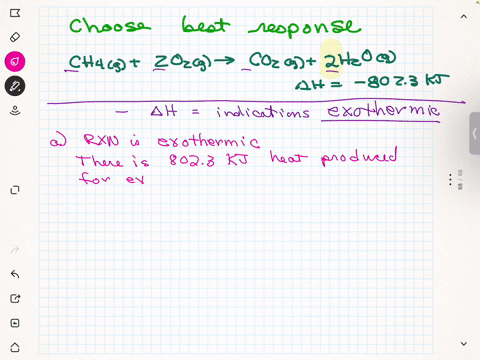 Choose best response
CH4(g) + 2O2(g) → CO2(g) + 2H2O(g)
ΔH = -802.3 KJ
- ΔH = indications exothermic
a) RXN is exothermic
There is 802.3 KJ heat produced
for ev